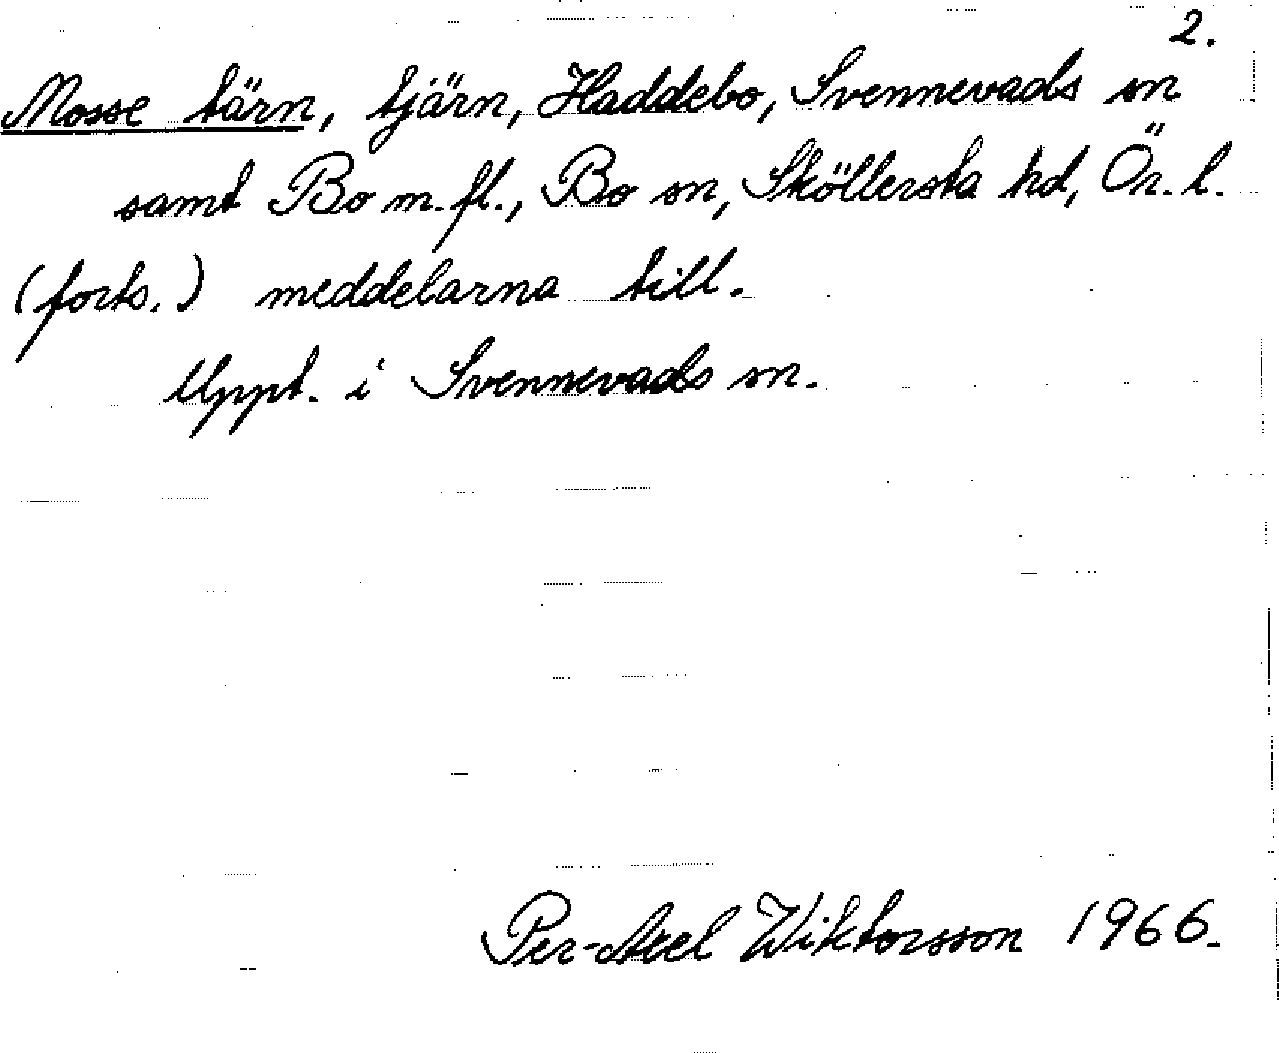 2.
Mosse tärn, tjärn, Haddebo, Svennevads sn
samt Bo m. fl., Bo sn, Sköllersta hd, Ör. l.
(forts.) meddelarna till.
Uppt. i Svennevads sn.
Per-Axel Wiktorsson 1966.